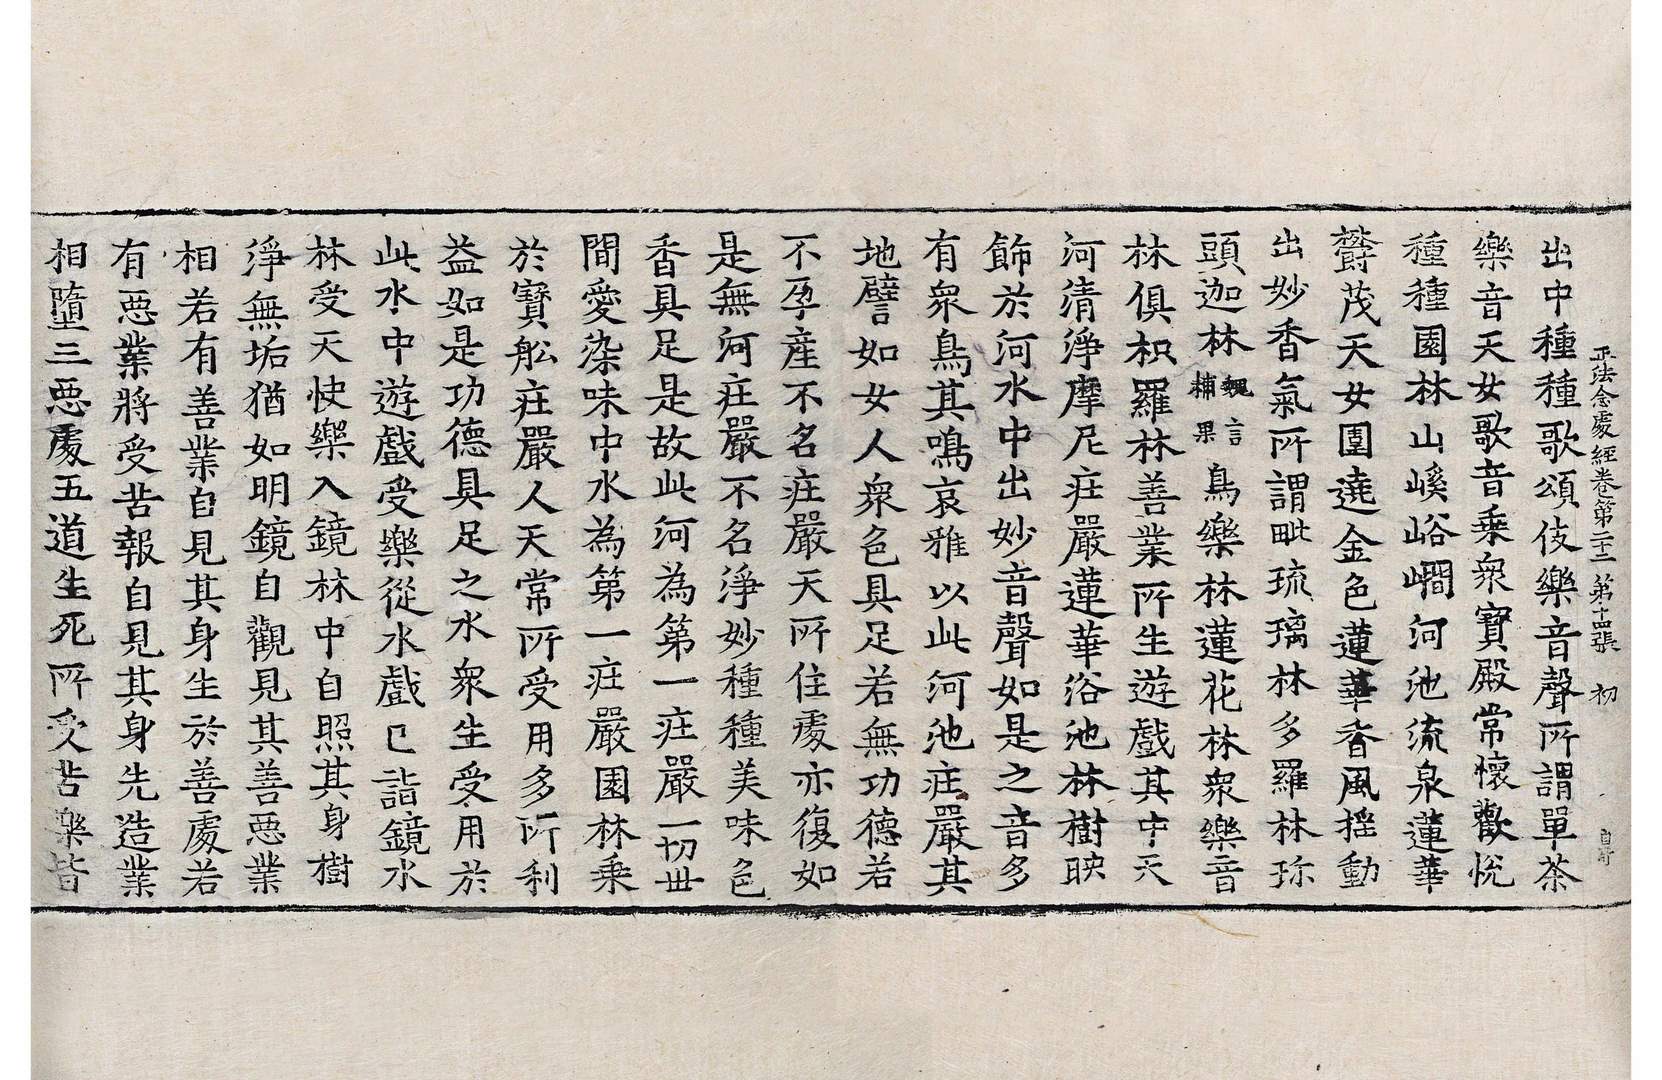 正法念處經卷第二十二 第十四張 初
出中種種歌頌伎樂音聲所謂單茶
樂音天女歌音乘衆寶殿常懷歡悅
種種園林山嵠峪㵎河池流泉蓮華
欝茂天女圍遶金色蓮華香風揺動
出妙香氣所謂毗琉璃林多羅林珎
頭迦林魏言補果鳥樂林蓮花林衆樂音
林俱枳羅林善業所生遊戲其中天
河清淨摩尼莊嚴蓮華浴池林樹映
飾於河水中出妙音聲如是之音多
有衆鳥其鳴哀雅以此河池莊嚴其
地譬如女人衆色具足若無功德若
不孕産不名莊嚴天所住處亦復如
是無河莊嚴不名淨妙種種美味色
香具足是故此河為第一莊嚴一切世
間愛染味中水為第一莊嚴園林乗
於寶舩莊嚴人天常所受用多所利
益如是功德具足之水衆生受用於
此水中遊戲受樂從水戲已詣鏡水
林受天快樂入鏡林中自照其身樹
淨無垢猶如明鏡自觀見其善惡業
相若有善業自見其身生於善處若
有惡業將受苦報自見其身先造業
相墮三惡處五道生死所受苦樂皆